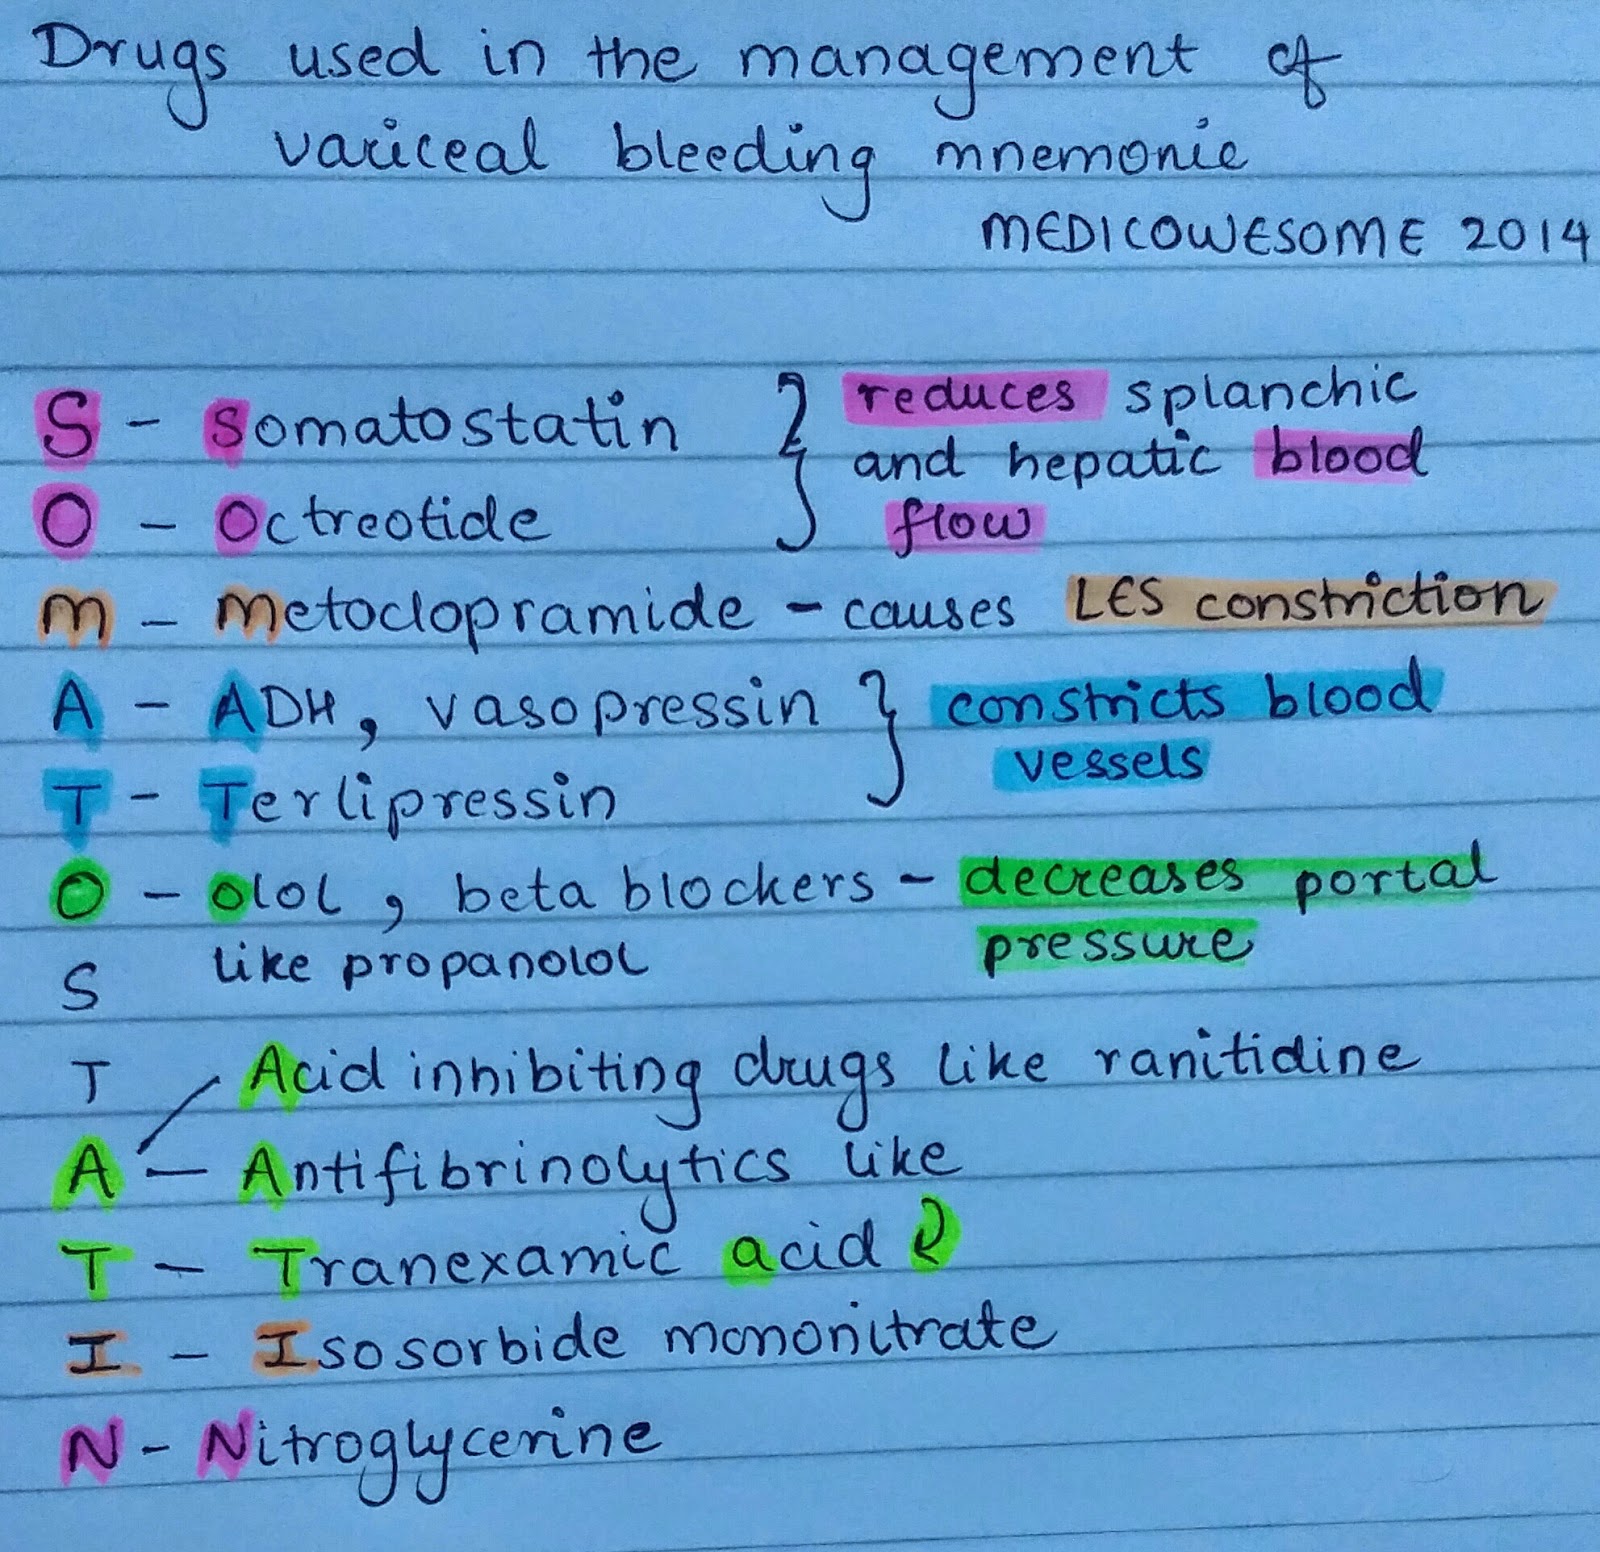 Drugs used in the management of
variceal bleeding mnemonic
MEDICOWESOME 2014
S - Somatostatin } reduces splanchic
and hepatic blood
O - Octreotide flow
M - Metoclopramide - causes LES constriction
A - ADH, vasopressin } constricts blood
vessels
T - Terlipressin
O - olol, beta blockers - decreases portal
pressure
like propanolol
S
T Acid inhibiting drugs like ranitidine
A - Antifibrinolytics like
T - Tranexamic acid
I - Isosorbide mononitrate
N - Nitroglycerine